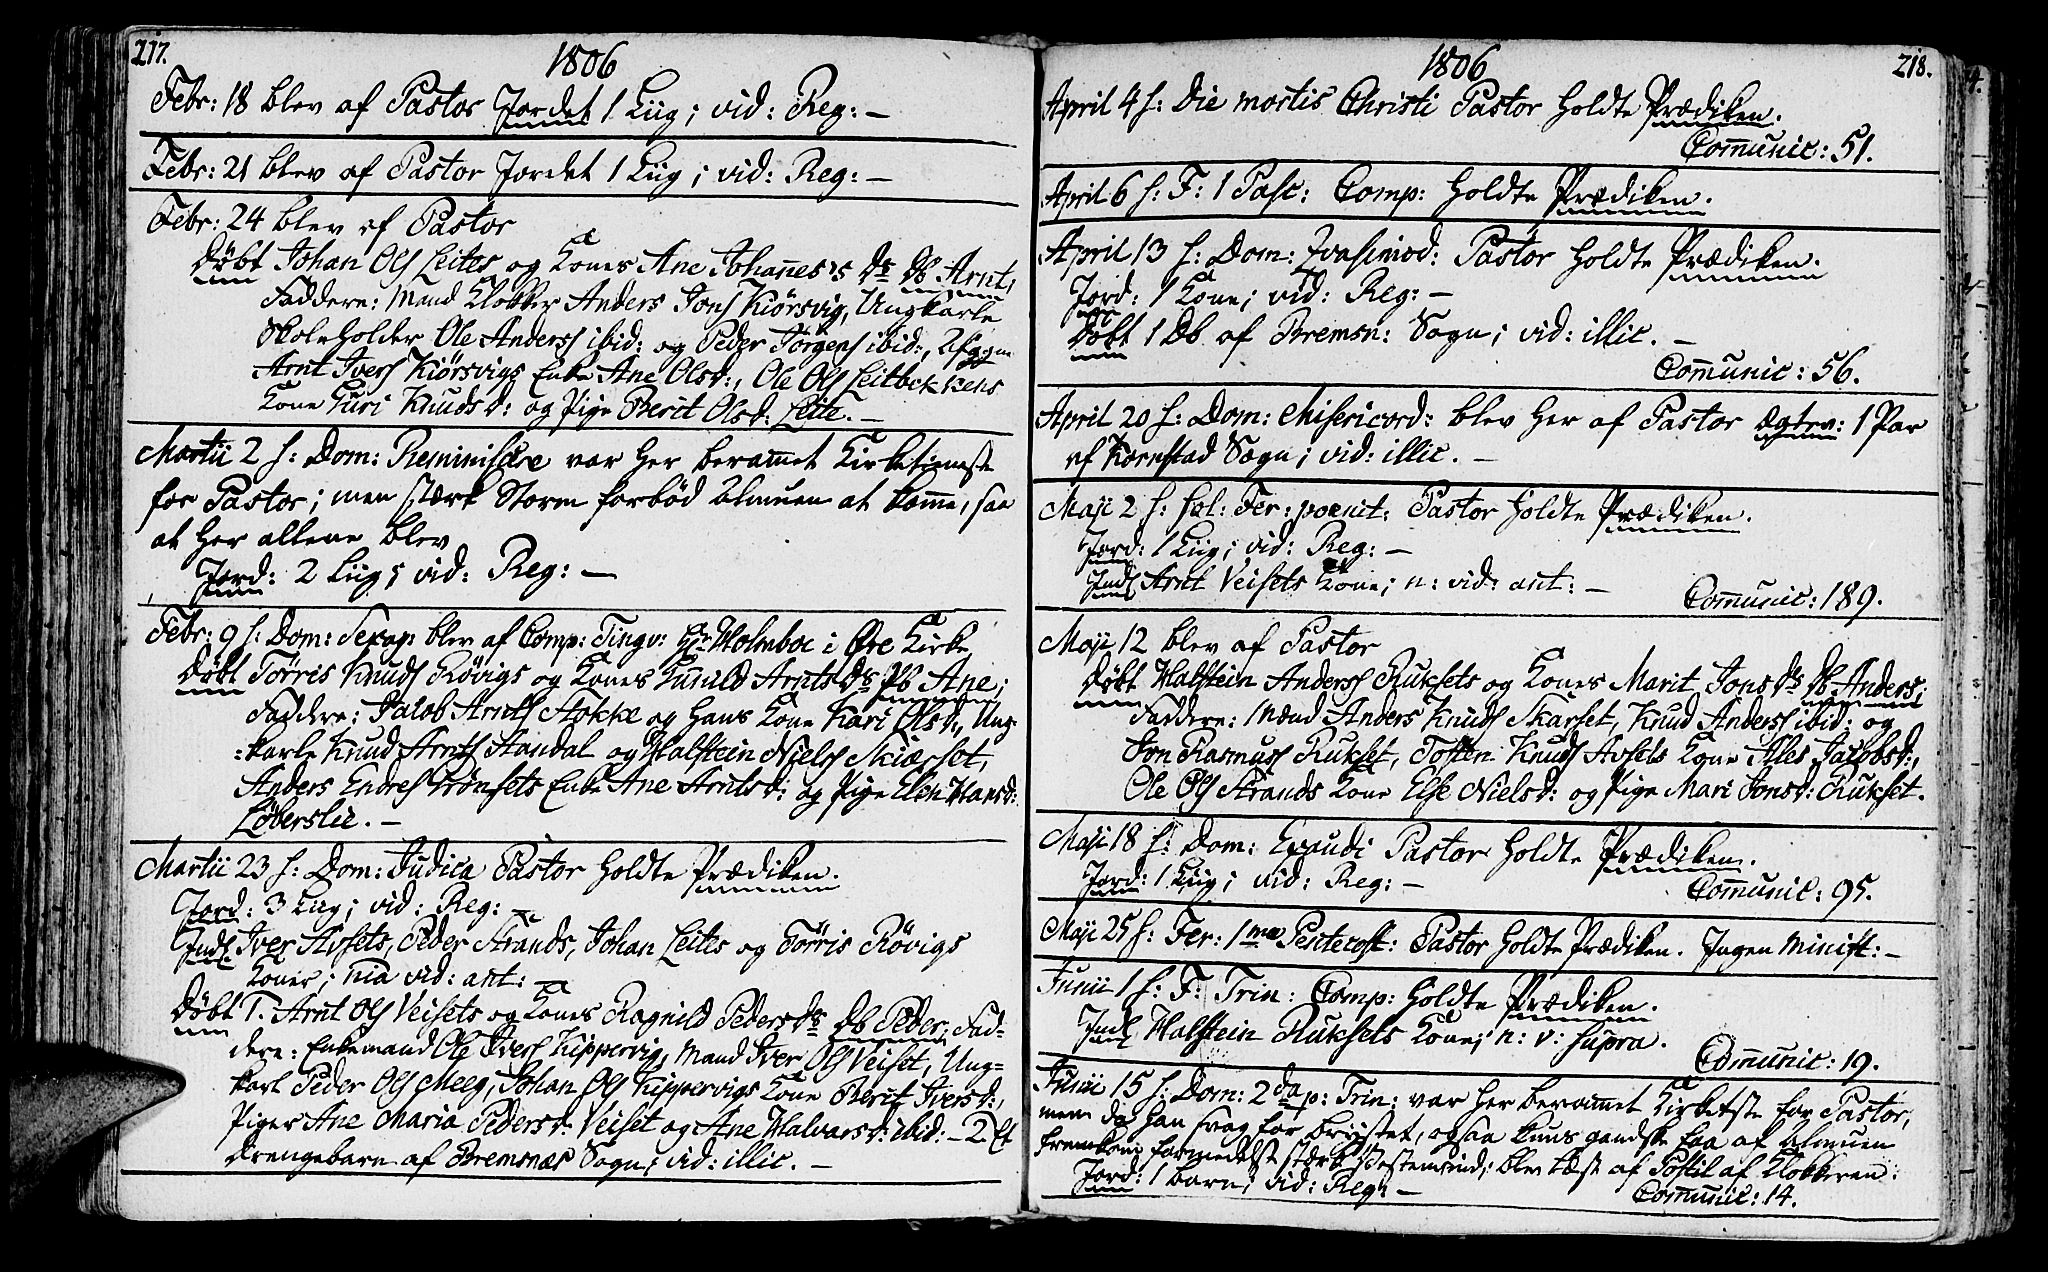 217.
1806
Febr: 18 blev af Pastor Jordet 1 Liig; vid: Reg: —
Febr: 21 blev af Pastor Jordet 1 Liig; vid: Reg: —
Febr: 24 blev af Pastor
Døbt Johan Ols Leites og Kones Ane Johannes's Ds Db Arnt,
Faddere: Mand Klokker Anders Jons Kiørsvig, Ungkarle
Skoleholder Ole Anders ibid: og Peder Jørgens ibid:,
Arnt Ivers Kiørsvigs Enke Ane Olsd:, Ole Ols Leitbekkens
Kone Guri Knudsd: og Pige Berit Olsd: Leite. —
Martii 2 h: Dom: Reminiscere var her berammet Kirketieneste
for Pastor; men stærk Storm forbød Almuen at komme, saa
at her allene blev
Jord: 2 Liig; vid: Reg: —
Febr: 9 h: Dom: Sexag blev af Comp: Tingv: Hr Holmboe i Øre Kirke
Døbt Tørris Knuds Røvigs og Kones Gunild Arntsds Pb Ane;
Faddere: Jacob Arnts Stokke og hans Kone Kari Olsd:, Ung-
karle Knud Arnts Standal og Halstein Niels Skiærset,
Anders Endres Grønsets Enke Ane Arntsd: og Pige Elen Hansd:
Løberslie. —
Martii 23 h: Dom: Judica Pastor holdte Prædiken.
Jord: 3 Liig; vid: Reg: —
Indl. Iver Avsets, Peder Strands, Johan Leites og Tørris Røvigs
Koner; nia vid: ant: —
Døbt 1. Arnt Ols Veisets og Kones Ragnild Pedersds Db Peder; Fad-
dere: Enkemand Ole Ivers Kippervig, Mand Iver Ols Veiset, Ung-
karl Peder Ols Meeg, Johan Ols Kippervigs Kone Berit Iversd:,
Piger Ane Maria Pedersd: Veiset og Ane Halvarsd: ibid: — 2
drengebarn af Bremsnæs Sogn; vid: illic. —
1806
218.
April 4 h: Die mortis Christi Pastor holdte Prædiken.
Communic: 51.
April 6 h: F: 1 Pasc: Comp: holdte Prædiken.
April 13 h: Dom: Qvasimod: Pastor holdte Prædiken.
Jord: 1 Kone; vid: Reg: —
Døbt 1 Db af Bremsn: Sogn; vid: illic. —
Communic: 56.
April 20 h: Dom: Misericord: blev her af Pastor Ægtev: 1 Par
af Kornstad Sogn; vid: illic. —
Maji 2 h: sol: Fer: poenit: Pastor holdte Prædiken.
Jord: 1 Liig; vid: Reg: —
Indl Arnt Veisets Kone; n: vid: ant: —
Communic: 189.
Maji 12 blev af Pastor
Døbt Halstein Anders Ruksets og Kones Marit Jonsds Db Anders;
Faddere: Mænd Anders Knuds Skarset, Knud Anders ibid: og
Jon Rasmus Rukset, Tosten Knuds Avsets Kone Ales Jacobsd:,
Ole Ols Strands Kone Else Nielsd: og Pige Mari Jonsd: Rukset.
Maji 18 h: Dom: Exaudi Pastor holdte Prædiken.
Jord: 1 Liig; vid: Reg: —
Communic: 95.
Maji 25 h: Fer: 1ma Pentecost: Pastor holdte Prædiken. Ingen Minist: —
Junii 1 h: F: Trin: Comp: holdte Prædiken.
Indl Halstein Ruksets Kone; n: v: supra.
Communic: 19.
Junii 15 h: Dom: 2da p: Trin: var her berammet Kirketste for Pastor,
men da han svag for Brystet, ogsaa kuns gandske faa af Almuen
fremkom formedelst stærk Vestenvind; blev læst af Postil af Klokkeren:
Jord: 1 barn; vid: Reg: —
Communic: 14.